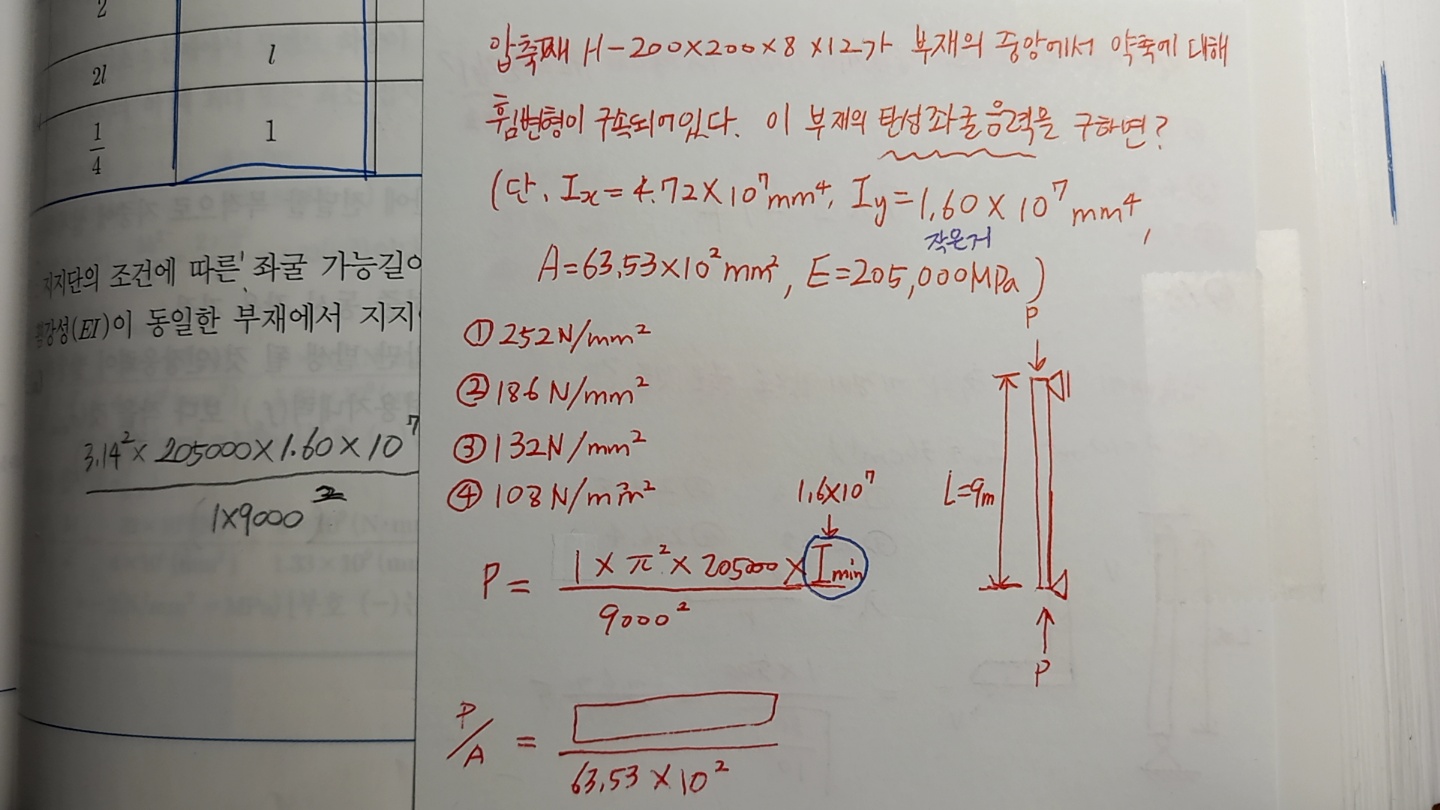 2
2l l
1/4 1
지지단의 조건에 따른 좌굴 가능길이
강성(EI)이 동일한 부재에서 지지
3.14² × 205000 × 1.60 × 10⁷
1×9000²
압축재 H-200×200×8×12가 부재의 중앙에서 약축에 대해
휨변형이 구속되어있다. 이 부재의 탄성좌굴응력을 구하면?
(단, Ix = 4.72×10⁷mm⁴, Iy = 1.60×10⁷mm⁴,
작은거
A=63.53×10²mm², E=205,000MPa)
① 252N/mm²
② 186N/mm²
③ 132N/mm²
④ 108N/mm²
P
L=9m
P
1.6×10⁷
P = 1×π²×205000×Imin
9000²
P/A =
63.53×10²